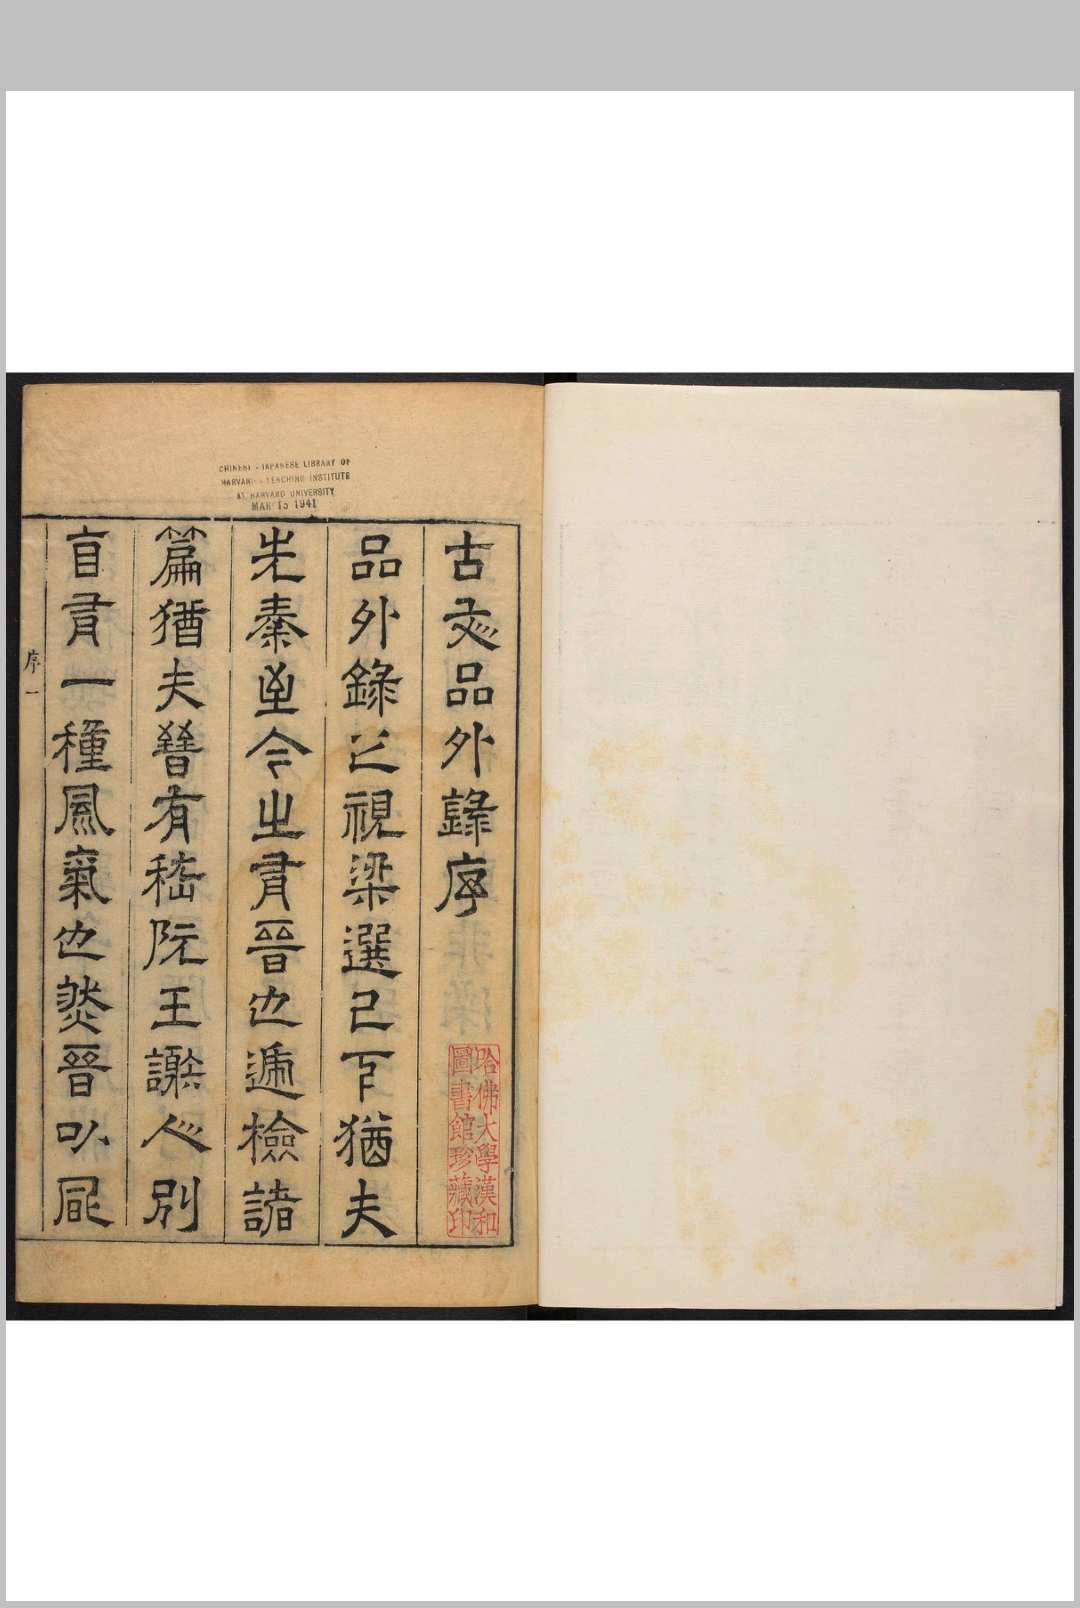 CHINESE - JAPANESE LIBRARY OF
HARVARD - YENCHING INSTITUTE
AT HARVARD UNIVERSITY
MAR 15 1941
古文品外錄序
品外錄之視梁選已下猶夫
先秦至今之有晉也遍檢諸
篇猶夫晉有嵇阮王謝人別
自有一種風氣也然晉以
序 一
哈佛大學漢和
圖書館珍藏印